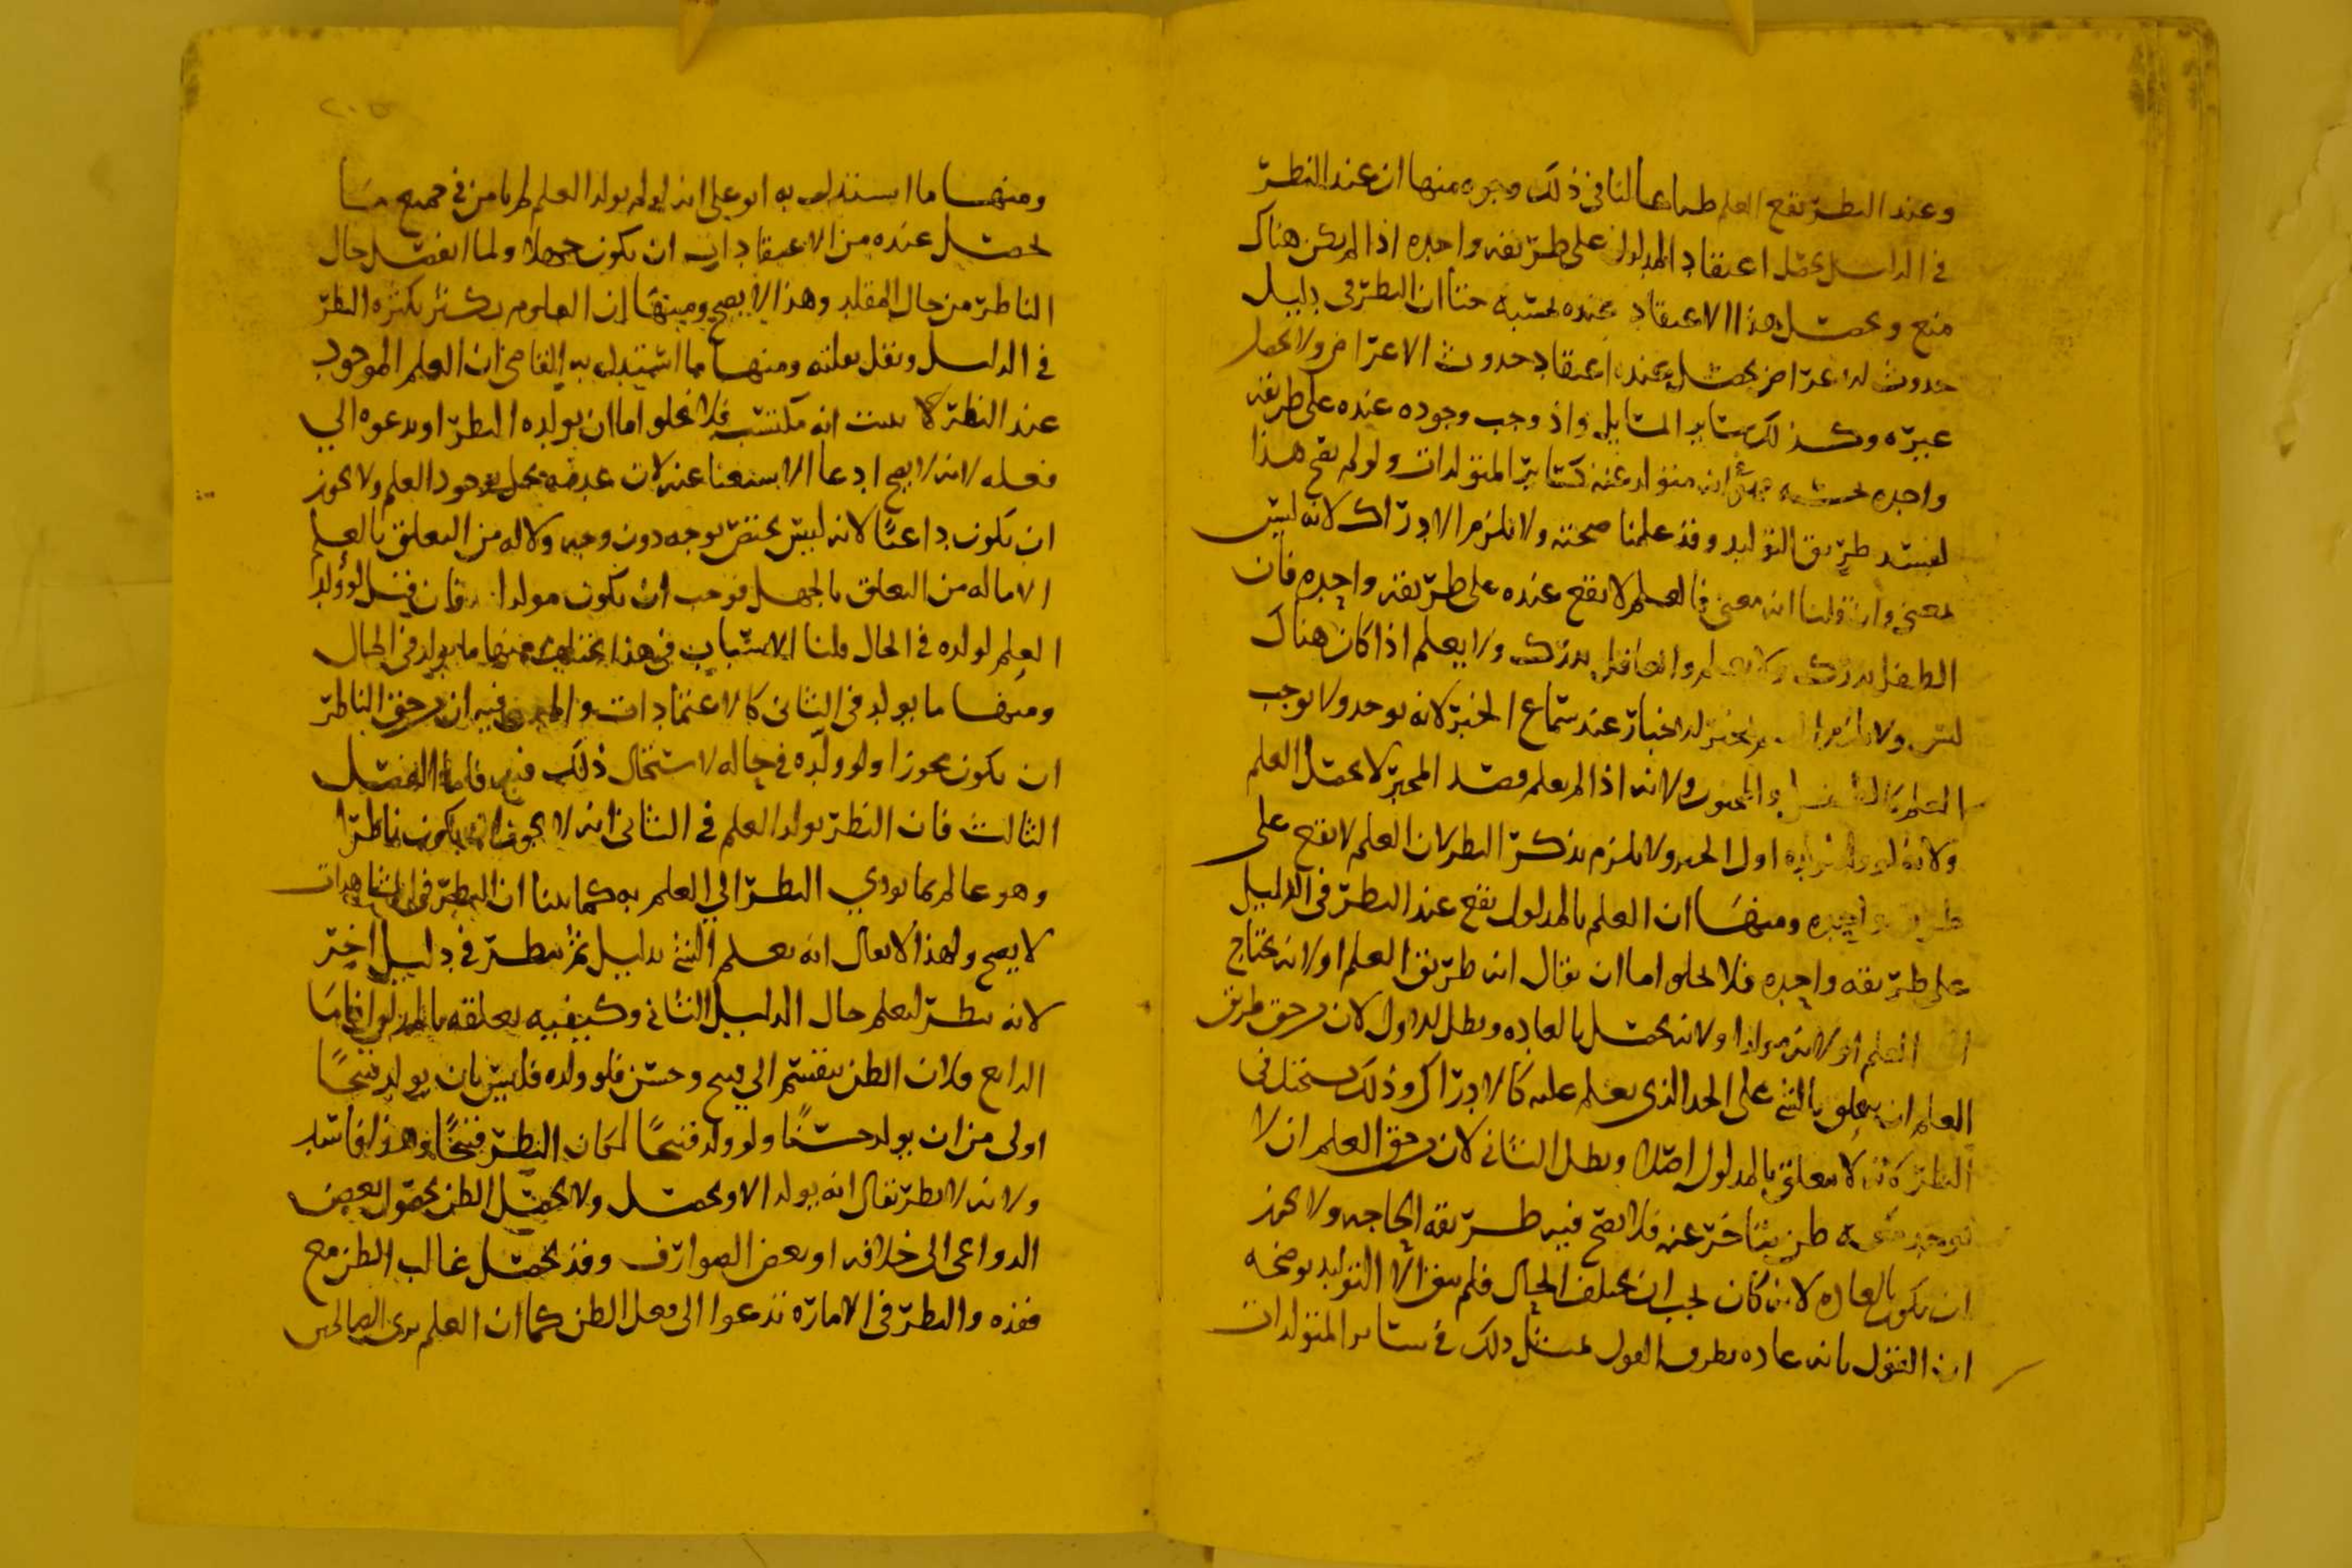 وعند النظر يقع العلم طباعا لنا في ذلك وجوه منها ان عند النظر
في الدليل يحصل اعتقاد المدلول على طريقة واحدة اذا لم يكن هناك
منع ويحصل هذا الاعتقاد عنده بحسبه حتى ان النظر في دليل
حدوث الاعراض يحصل عنده اعتقاد حدوث الاعراض ولا يحصل
غيره وكذلك سائر المسائل واذ وجب وجوده عنده على طريقة
واحدة بحسبه انه متولد عنه كسائر المتولدات ولو لم يقع هذا
لفسد طريق التوليد وقد علمنا صحته ولا يلزم الادراك لانه ليس
بمعنى وان قلنا انه معنى فالعلم لا يقع عنده على طريقة واحدة فان
الطفل يدرك ولا يعلم والعاقل يدرك ولا يعلم اذا كان هناك
لبس ولا يلزم الاخبار عند سماع الخبر لانه يوجد ولا يوجب
العلم والمجنون ولانه اذا لم يعلم قصد المخبر لا يحصل العلم
ولانه اول الخبر ولا يلزم تذكر النظر لان العلم لا يقع على
واحدة ومنها ان العلم بالمدلول يقع عند النظر في الدليل
على طريقة واحدة فلا يخلو اما ان يقال انه طريق العلم او لانه يحتاج
العلم او لانه مولد او لانه يحصل بالعادة وبطل الاول لان من حق طريق
العلم ان يتعلق بالشيء على الحد الذي يعلم عليه كالادراك وذلك يستحيل في
النظر لانه لا يتعلق بالمدلول اصلا وبطل الثاني لان من حق العلم ان لا
يوجد يتأخر عنه فلا يصح فيه طريقة الحاجة ولا يجوز
ان يكون بالعادة لانه كان يجب ان يختلف الحال فلم يبق الا التوليد يوضحه
ان القول بانه عادة يطرق القول بمثل ذلك في سائر المتولدات
ومنها ما استدل به ابو علي انه لو لم يولد العلم لم يامن في جميع ما
يحصل عنده من الاعتقادات ان يكون جهلا ولما انفصل حال
الناظر من حال المقلد وهذا لا يصح ومنها ان العلوم يكثر بكثرة النظر
في الدليل ويقل بقلته ومنها ما استدل به القاضي ان العلم الموجود
عند النظر لا انه مكتسب فلا يخلو اما ان يولده النظر او يدعوه الى
فعله لانه لا يصح ادعا الاستغنا عنه لان وجود العلم ولا يجوز
ان يكون داعيا لانه ليس يختص بوجه دون وجه ولا له من التعلق بالعلم
الا ما له من التعلق بالجهل فوجب ان يكون مولدا فان قيل لو ولد
العلم لولده في الحال قلنا الاسباب في هذا تختلف فمنها ما يولد في الحال
ومنها ما يولد في الثاني كالاعتمادات فيه ان من حق الناظر
ان يكون مجوزا ولو ولده في حاله لاستحال ذلك فيه فاما الفصل
الثالث فان النظر يولد العلم في الثاني انه لا يجوز ان يكون ناظرا
وهو عالم بما يؤدي النظر الى العلم به كما بينا ان النظر في المشاهدات
لا يصح ولهذا لا يقال انه يعلم الشيء بدليل ثم ينظر في دليل اخر
لانه ينظر ليعلم حال الدليل الثاني وكيفية تعلقه بالمدلول فاما
الرابع فلان الظن ينقسم الى قبيح وحسن فلو ولده فليس بان يولد قبيحا
اولى من ان يولد حسنا ولو ولد قبيحا لكان النظر قبيحا وهذا فاسد
ولانه لا نظر يقال انه يولد الا ويحصل ولا يحصل الظن بعض
الدواعي الى خلافه او بعض الصوارف وقد يحصل غالب الظن مع
فقده والنظر في الامارة تدعوا الى فعل الظن كما ان العلم